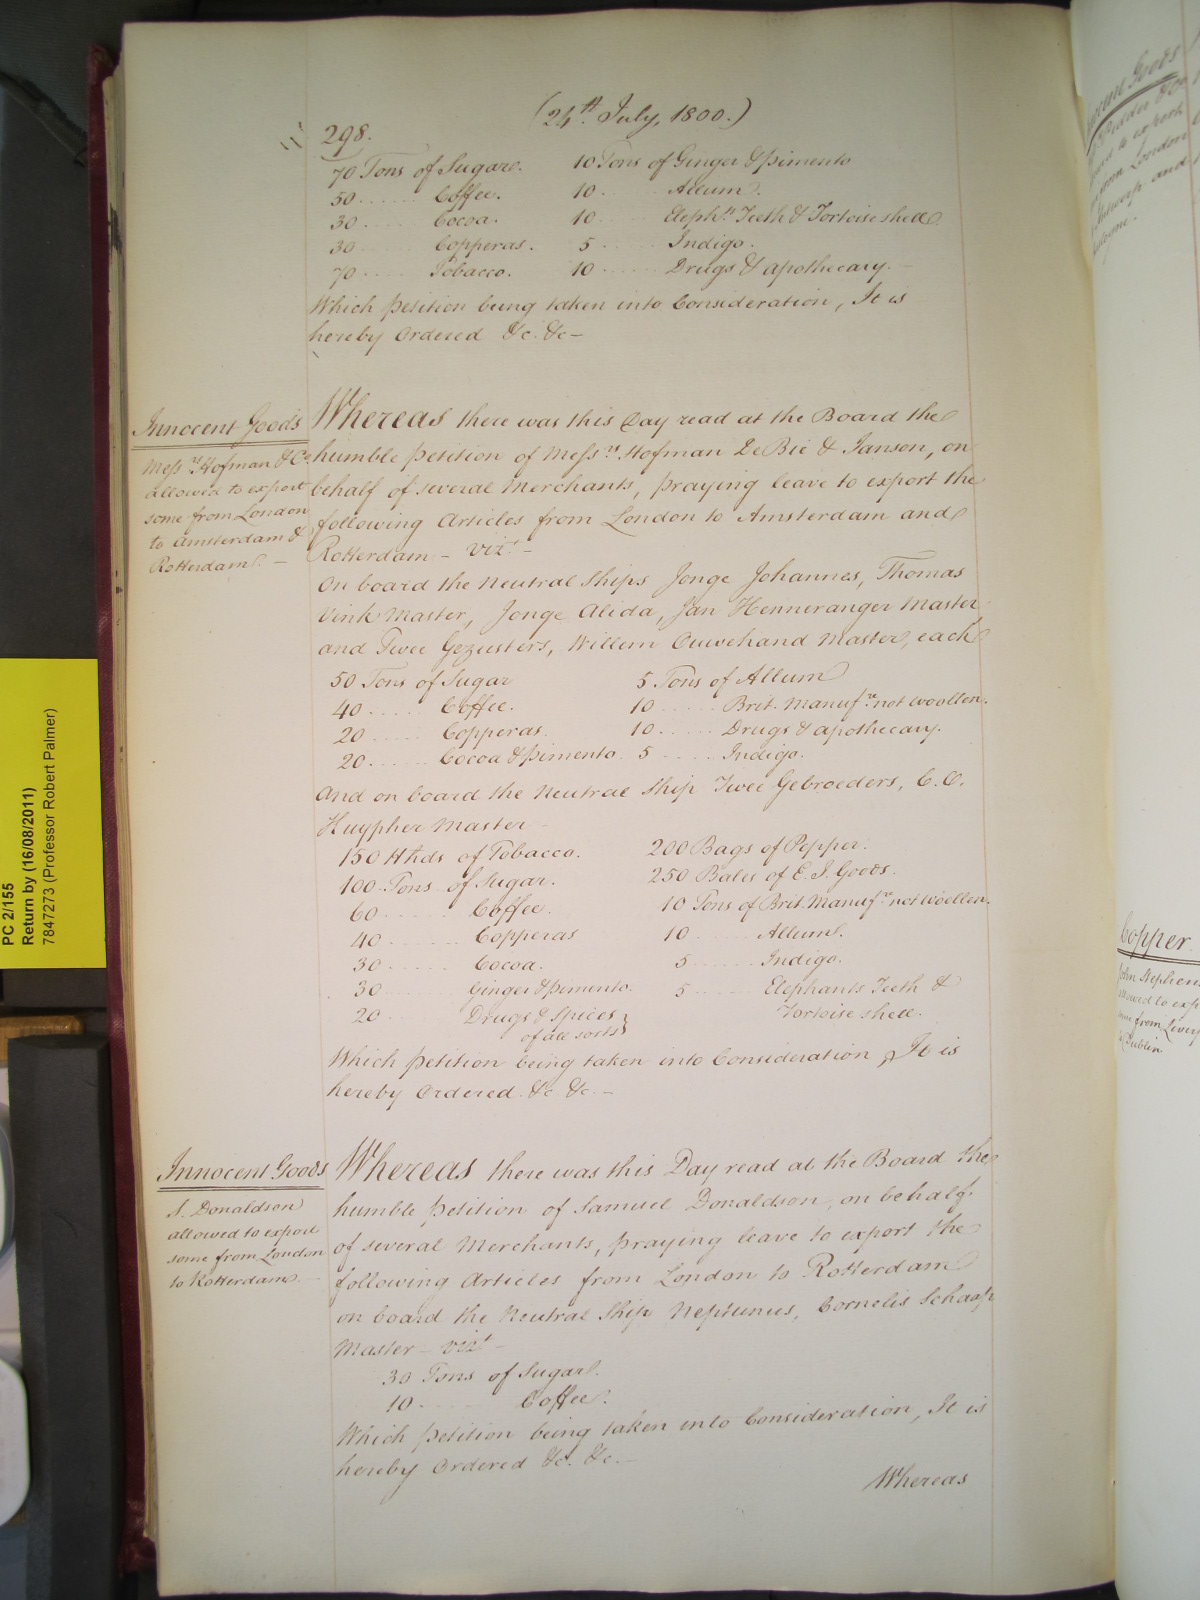 298.
(24th July, 1800.)
70 Tons of Sugar. 10 Tons of Ginger & Pimento
50 ...... Coffee. 10 ...... Allum.
30 ...... Cocoa. 10 ...... Elephts Teeth & Tortoise shell
30 ...... Copperas. 5 ...... Indigo.
70 ...... Tobacco. 10 ...... Drugs & apothecary.
Which Petition being taken into Consideration, It is
hereby Ordered &c. &c—
Innocent Goods
Messrs Hofman & Co
allowed to export
some from London
to Amsterdam &
Rotterdam. —
Whereas there was this Day read at the Board the
humble Petition of Messrs Hofman Le Bie & Janson, on
behalf of several Merchants, praying leave to export the
following Articles from London to Amsterdam and
Rotterdam — vizt —
On board the Neutral Ships Jonge Johannes, Thomas
Vink Master, Jonge Alida, Jan Henneranger Master
and Twee Gezusters, Willem Ouwehand Master, each
50 Tons of Sugar 5 Tons of Allum
40 ..... Coffee. 10 ..... Brit. Manufre not woollen.
20 ..... Copperas. 10 ..... Drugs & apothecary.
20 ..... Cocoa & Pimento 5 ..... Indigo.
And on board the Neutral Ship Twee Gebroeders, C. C.
Kuypher Master —
150 Hhds of Tobacco. 200 Bags of Pepper.
100 Tons of Sugar. 250 Bales of E. I. Goods.
60 ...... Coffee. 10 Tons of Brit. Manufre not woollen.
40 ...... Copperas 10 ...... Allum.
30 ...... Cocoa. 5 ...... Indigo.
30 ...... Ginger & Pimento. 5 ...... Elephants Teeth &
20 ...... Drugs & Spices Tortoise shell.
of all sorts
Which Petition being taken into Consideration, It is
hereby Ordered &c &c. —
Innocent Goods
S. Donaldson
allowed to export
some from London
to Rotterdam. —
Whereas there was this Day read at the Board the
humble Petition of Samuel Donaldson, on behalf
of several Merchants, praying leave to export the
following Articles from London to Rotterdam
on board the Neutral Ship Neptunus, Cornelis Schaap
Master — vizt —
30 Tons of Sugar.
10 ...... Coffee.
Which Petition being taken into Consideration, It is
hereby Ordered &c. &c. —
Whereas
PC 2/155
Return by (16/08/2011)
7847273 (Professor Robert Palmer)
Copper.
John Stephens
allowed to exp
some from Liver
to Dublin.